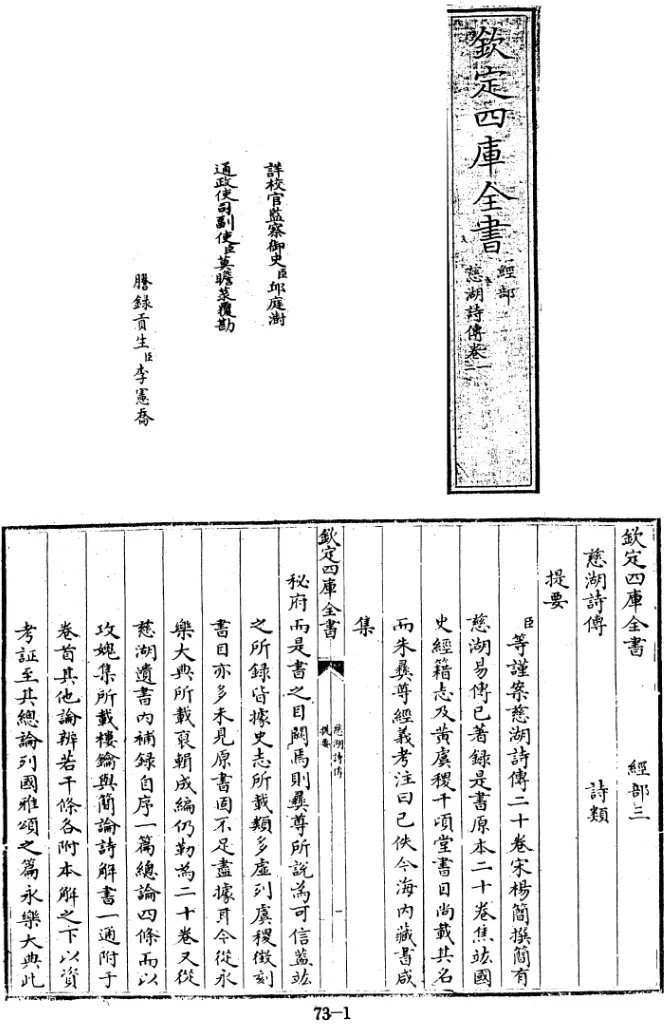 欽定四庫全書
經部
慈湖詩傳卷一
詳校官監察御史臣邱庭漋
通政使司副使臣莫瞻菉覆勘
謄錄貢生臣李憲喬
欽定四庫全書 經部三
慈湖詩傳 詩類
提要
臣等謹案慈湖詩傳二十卷宋楊簡撰簡有
慈湖易傳已著録是書原本二十卷焦竑國
史經籍志及黃虞稷千頃堂書目尚載其名
而朱彝尊經義考注曰已佚今海内藏書咸
集
欽定四庫全書
慈湖詩傳
提要
一
秘府而是書之目闕焉則彝尊所說為可信葢竑
之所録皆據史志所載類多虚列虞稷徴刻
書目亦多未見原書固不足盡據耳今從永
樂大典所載裒輯成編仍勒為二十卷又從
慈湖遺書内補録自序一篇總論四條而以
攻媿集所載樓鑰與簡論詩解書一通附于
卷首其他論辨若干條各附本解之下以資
考証至其總論列國雅頌之篇永樂大典此
73-1